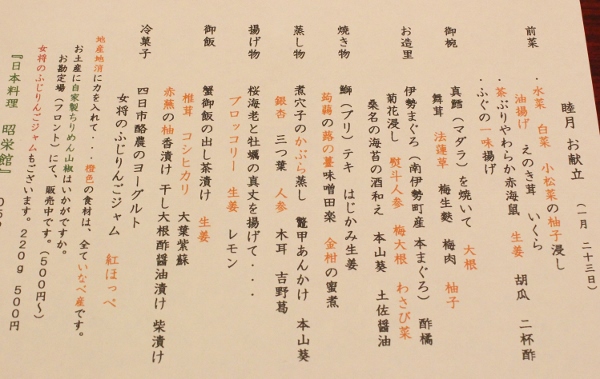 睦月 お献立
(一月 二十三日)
前菜
・水菜 白菜 小松菜の柚子浸し
油揚げ えのき茸 いくら
・茶ぶりやわらか赤海鼠 生姜 胡瓜 二杯酢
・ふぐの一味揚げ
御椀
真鱈(マダラ)を焼いて 大根
舞茸 法蓮草 梅生麩 梅肉 柚子
お造里
伊勢まぐろ(南伊勢町産 本まぐろ) 酢橘
菊花浸し 熨斗人参 梅大根 わさび菜
桑名の海苔の酒和え 本山葵 土佐醤油
焼き物
鰤(ブリ)テキ はじかみ生姜
蒟蒻の蕗の薹味噌田楽 金柑の蜜煮
蒸し物
煮穴子のかぶら蒸し 鼈甲あんかけ 本山葵
銀杏 三つ葉 人参 木耳 吉野葛
揚げ物
桜海老と牡蠣の真丈を揚げて・・・
ブロッコリー 生姜 レモン
御飯
蟹御飯の出し茶漬け 生姜
椎茸 コシヒカリ 大葉紫蘇
赤蕪の柚香漬け 干し大根酢醤油漬け 柴漬け
冷菓子
四日市酪農のヨーグルト
女将のふじりんごジャム 紅ほっぺ
地産地消に力を入れて・・・橙色の食材は、全ていなべ産です。
お土産に自家製ちりめん山椒はいかがですか。
お勘定場(フロント)にて、販売中です。(500円~)
女将のふじりんごジャムもございます。220g 500円
『日本料理 昭栄館』